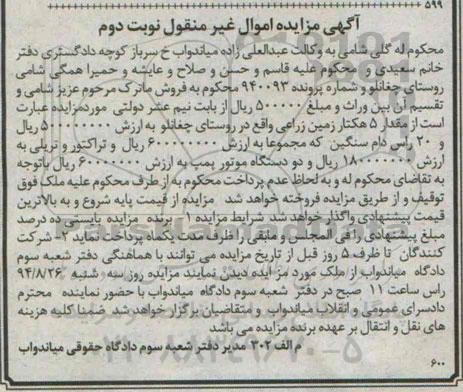 ۵۹۹
آگهی مزایده اموال غیر منقول نوبت دوم
محکوم له گلی شامی به وکالت عبدالعلی زاده میاندواب خ سرباز کوچه دادگستری دفتر
خانم سعیدی و محکوم علیه قاسم و حسن و صلاح و عایشه و حمیرا همگی شامی
روستای چغانلو و شماره پرونده ۹۴۰۰۹۳ محکوم به فروش ماترک مرحوم عزیز شامی و
تقسیم آن بین وراث و مبلغ ۵۰۰۰۰۰ ریال از بابت نیم عشر دولتی موردمزایده عبارت
است از مقدار ۵ هکتار زمین زراعی واقع در روستای چغانلو به ارزش ریال
و ۲۰ راس دام سنگین که مجموعا به ارزش ریال و تراکتور و تریلی به
ارزش ریال و دو دستگاه موتور پمپ به ارزش ریال باتوجه
به تقاضای محکوم له و به لحاظ عدم پرداخت محکوم به از طرف محکوم علیه ملک فوق
توقیف و از طریق مزایده فروخته خواهد شد مزایده از قیمت پایه شروع و به بالاترین
قیمت پیشنهادی واگذار خواهد شد شرایط مزایده ۱- برنده مزایده بایستی ده درصد
مبلغ پیشنهادی را فی المجلس و مابقی را ظرف مدت یکماه پرداخت نماید ۲- شرکت
کنندگان تا ظرف ۵ روز قبل از تاریخ مزایده می توانند با هماهنگی دفتر شعبه سوم
دادگاه میاندواب از ملک مورد مزایده دیدن نمایند مزایده روز سه شنبه ۹۴/۸/۲۶
راس ساعت ۱۱ صبح در دفتر شعبه سوم دادگاه میاندواب با حضور نماینده محترم
دادسرای عمومی و انقلاب میاندواب و متقاضیان برگزار خواهد شد ضمنا کلیه هزینه
های نقل و انتقال بر عهده برنده مزایده می باشد
م الف ۳۰۲ مدیر دفتر شعبه سوم دادگاه حقوقی میاندواب
۶۰۰